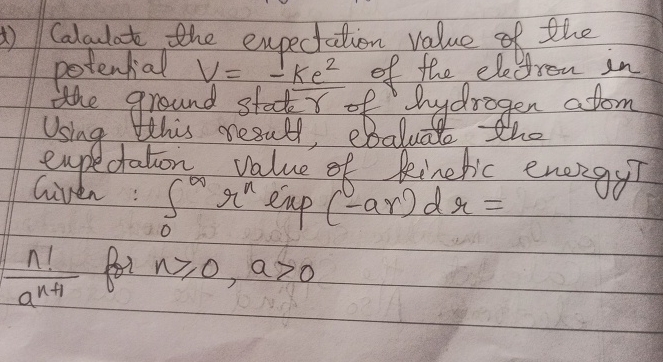 d) Calculate the expectation value of the
potential V = -Ke²/r of the electron in
the ground state of hydrogen atom
Using this result, ebaluate the
expectation value of kinetic energy T
Given : ∫₀^∞ rⁿ exp (-ar) dr =
n!/aⁿ⁺¹ for n≥0, a>0